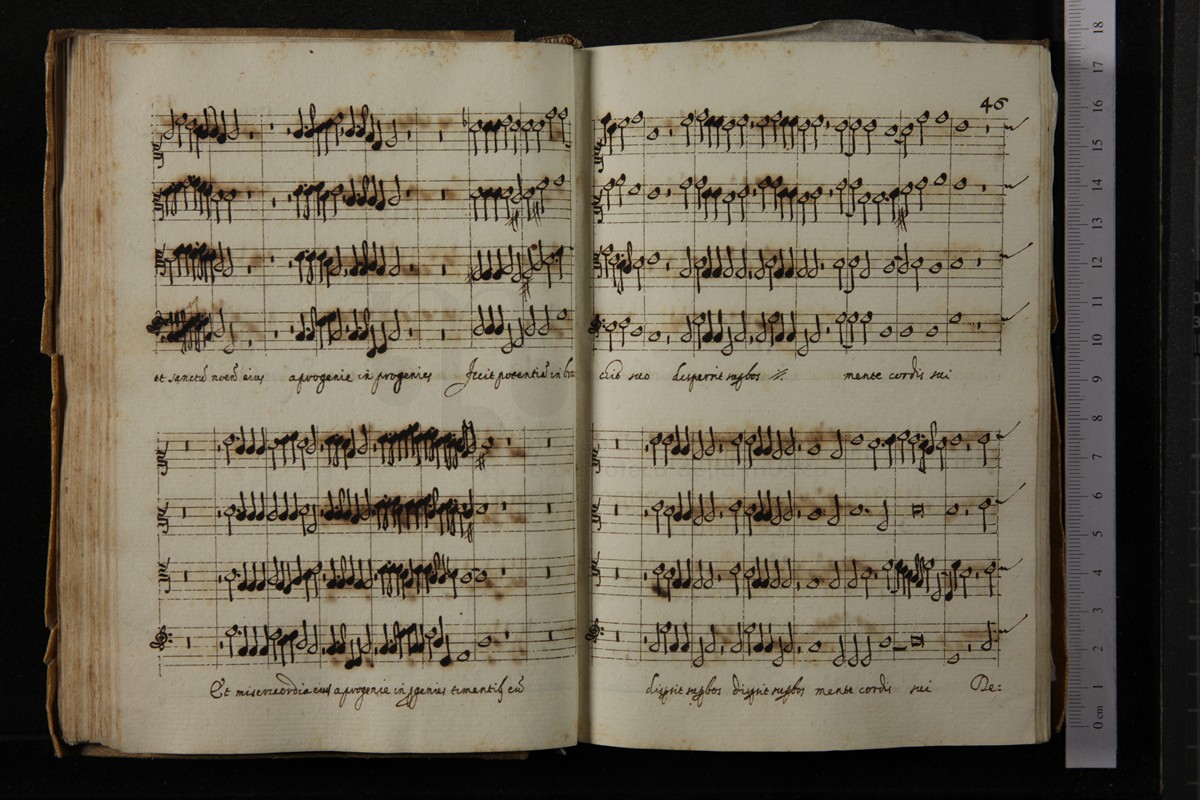 46
et sanctũ nomẽ eius a progenie in progenies Fecit potentiã in bra
chio suo dispersit supbos //. mente cordis sui
Et misericordia eius a progenie in pgenies timentibꝰ eũ
dispsit supbos dispsit supbos mente cordis sui De:
0 cm 1 2 3 4 5 6 7 8 9 10 11 12 13 14 15 16 17 18